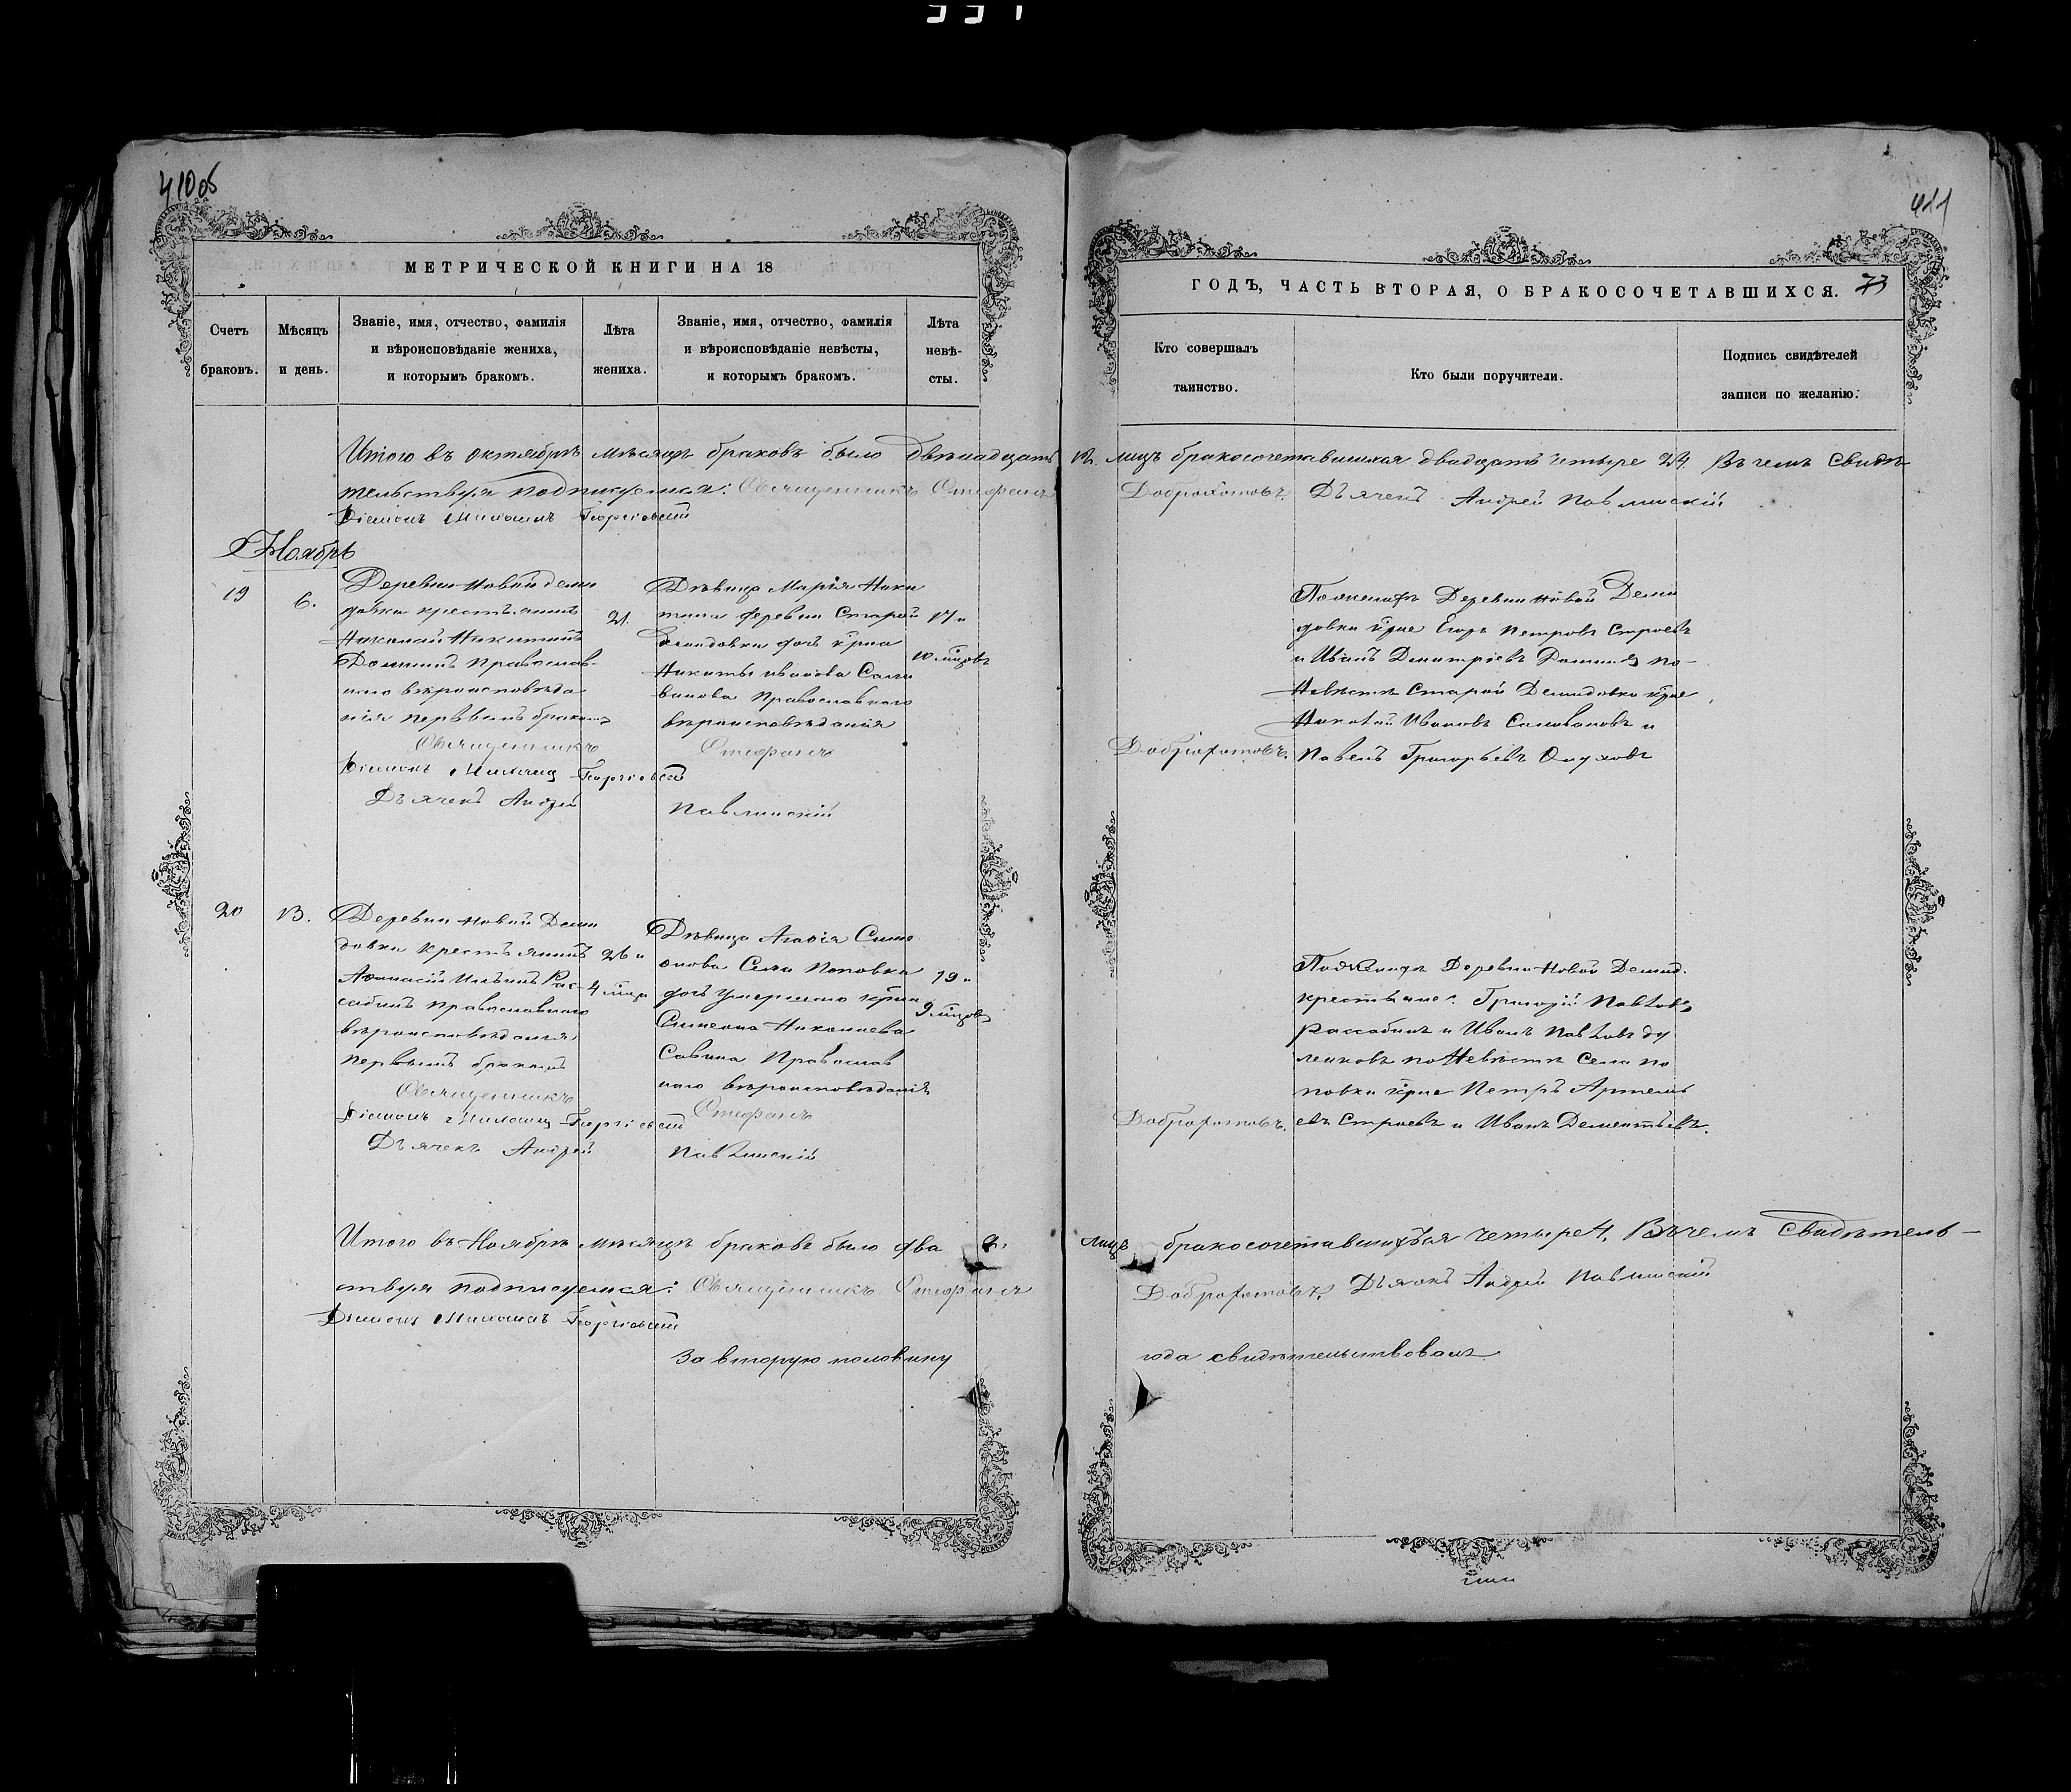 410 об
МЕТРИЧЕСКОЙ КНИГИ НА 18
Счетъ браковъ.
Мѣсяцъ и день.
Званіе, имя, отчество, фамилія
и вѣроисповѣданіе жениха,
и которымъ бракомъ.
Лѣта
жениха.
Званіе, имя, отчество, фамилія
и вѣроисповѣданіе невѣсты,
и которымъ бракомъ.
Лѣта
невѣ-
сты.
Итого въ октябрѣ мѣсяцѣ браковъ было двѣнадцать
тельствуя подписуемся: Священникъ Стефанъ
Діаконъ Георгіевскій
Ноябрь
19
6.
Деревни Новой деми
довки крестьянинъ
Николай Никитинъ
Православ-
наго вѣроисповѣда
нія первымъ бракомъ
21.
Дѣвица Марія Ники
тина деревни Старой
Демидовки дочь кр̃на
Никиты иванова Сали
ванова Православнаго
вѣроисповѣданія
17 и
10 мцовъ
Священникъ Стефанъ
Діаконъ Георгіевскій
Дьячекъ Андрей Павлинскій
20
13.
Деревни Новой Деми
довки крестьянинъ
Афанасій Ильинъ Рас-
сабинъ Православнаго
вѣроисповѣданія
первымъ бракомъ
26 и
4 мца
Дѣвица Агафія Симе
онова Села Поповки
дочь умершаго кр̃на
Симеона Николаева
Савина Православ
наго вѣроисповѣданія
19 и
9 мцовъ
Священникъ Стефанъ
Діаконъ Георгіевскій
Дьячекъ Андрей Павлинскій
Итого въ Ноябрѣ мѣсяцѣ браковъ было два 2.
ствуя подписуемся: Священникъ Стефанъ
Діаконъ Георгіевскій
За вторую половину
411
ГОДЪ, ЧАСТЬ ВТОРАЯ, О БРАКОСОЧЕТАВШИХСЯ. 73
Кто совершалъ
таинство.
Кто были поручители.
Подпись свидѣтелей
записи по желанію.
12. лицъ бракосочетавшихся двадцать четыре 24. Въ чемъ свидѣ
Доброхотовъ. Дьячекъ Андрей Павлинскій
Пожениху Деревни Новой Деми
довки кр̃не Егоръ Петровъ Строевъ
и Иванъ Дмитріевъ по-
Невѣстѣ Старой Демидовки кр̃не
Николай Ивановъ Саливановъ и
Доброхотовъ. Павелъ Григорьевъ
Пожениху Деревни Новой Демид.
крестьяне: Григорій Павловъ
Рассабинъ и Иванъ Павловъ Ду
ленковъ по Невѣстѣ Села По
повки кр̃не Петръ Артемь
Доброхотовъ. евъ Строевъ и Иванъ Дементьевъ.
лицъ бракосочетавшихся четыре 4. Въ чемъ свидѣтель-
Доброхотовъ. Дьячекъ Андрей Павлинскій
года свидѣтельствовалъ